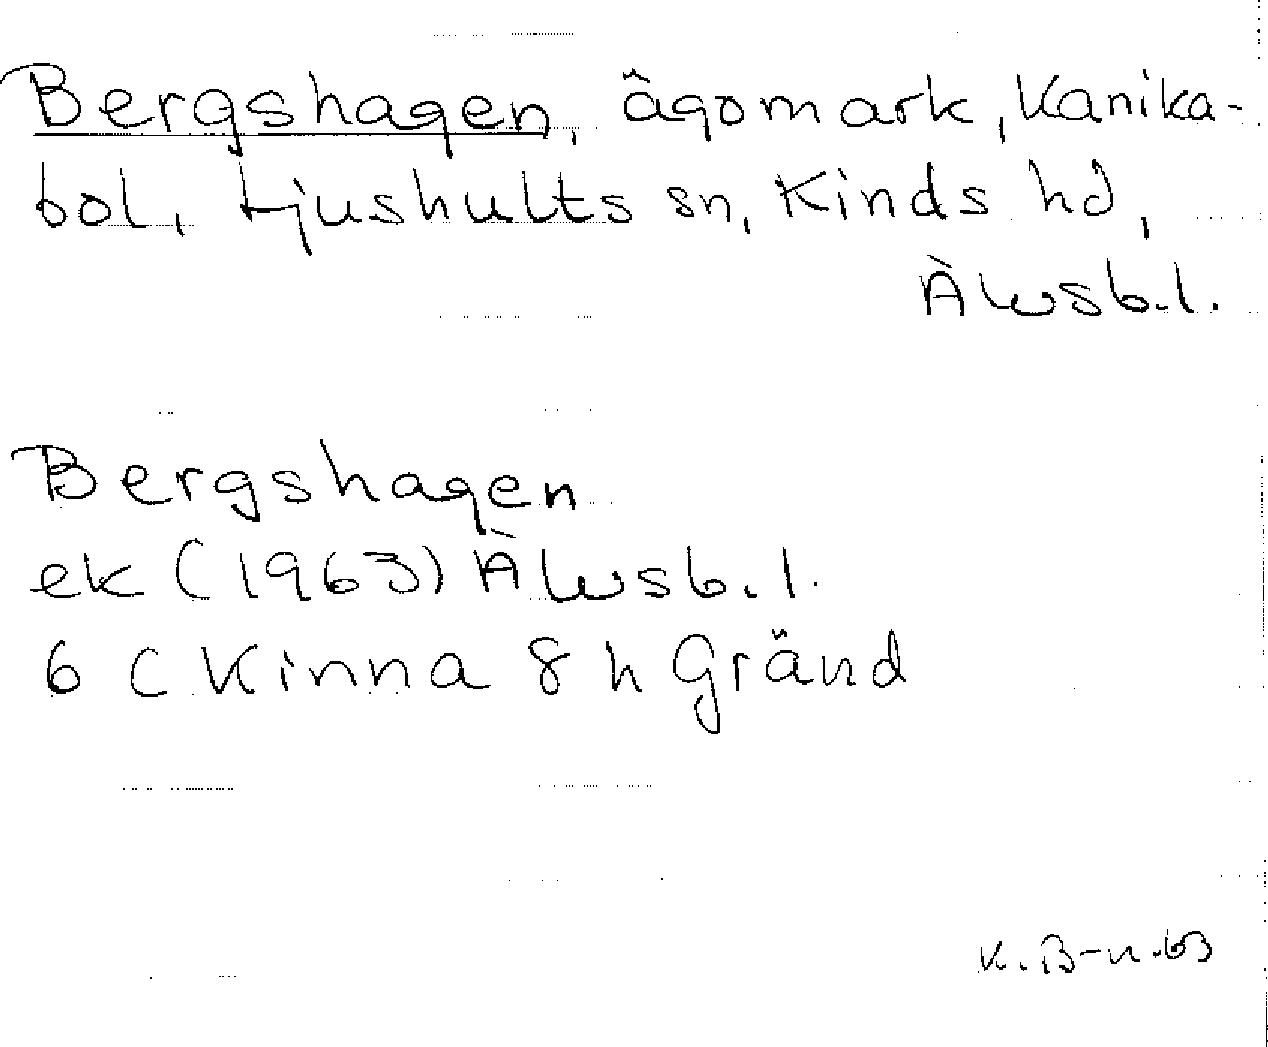 Bergshagen, ägomark, Kanika-
bol, Ljushults sn, Kinds hd,
Älvsb.l.
Bergshagen
ek (1963) Älvsb.l.
6 C Kinna 8 h Gränd
K.B-n.63